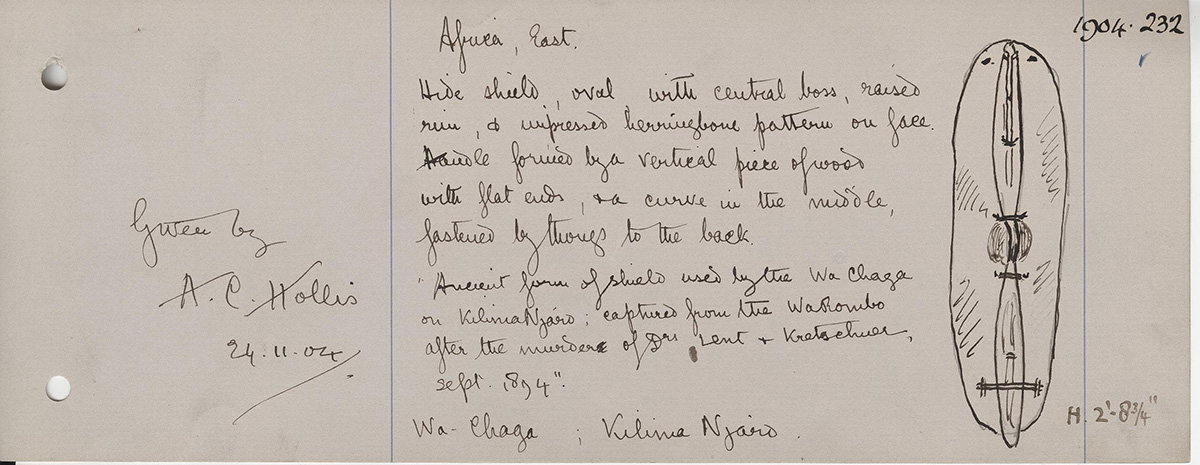 1904.232
Africa, East.
Hide shield, oval, with central boss, raised
rim, & impressed herringbone pattern on face.
Handle formed by a vertical piece of wood
with flat ends, & a curve in the middle,
fastened by thongs to the back.
"Ancient form of shield used by the Wa Chaga
on KilimaNjaro; captured from the WaRombo
after the murder of Drs Lent & Kretschmer,
Sept. 1894".
Wa-Chaga ; Kilima Njaro.
Given by
A. C. Hollis
24.11.04
H. 2'-8¾"